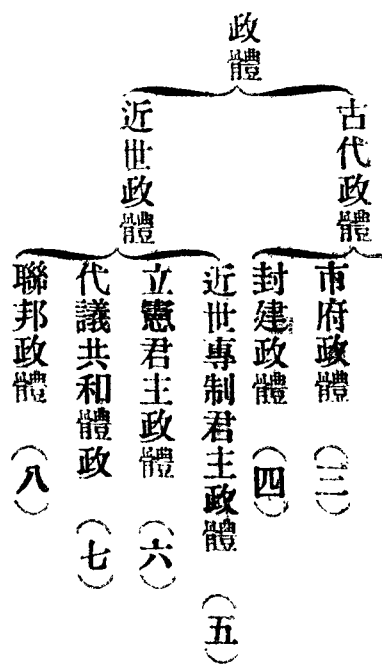 政體
古代政體
近世政體
市府政體 (三)
封建政體 (四)
近世專制君主政體 (五)
立憲君主政體 (六)
代議共和體政 (七)
聯邦政體 (八)